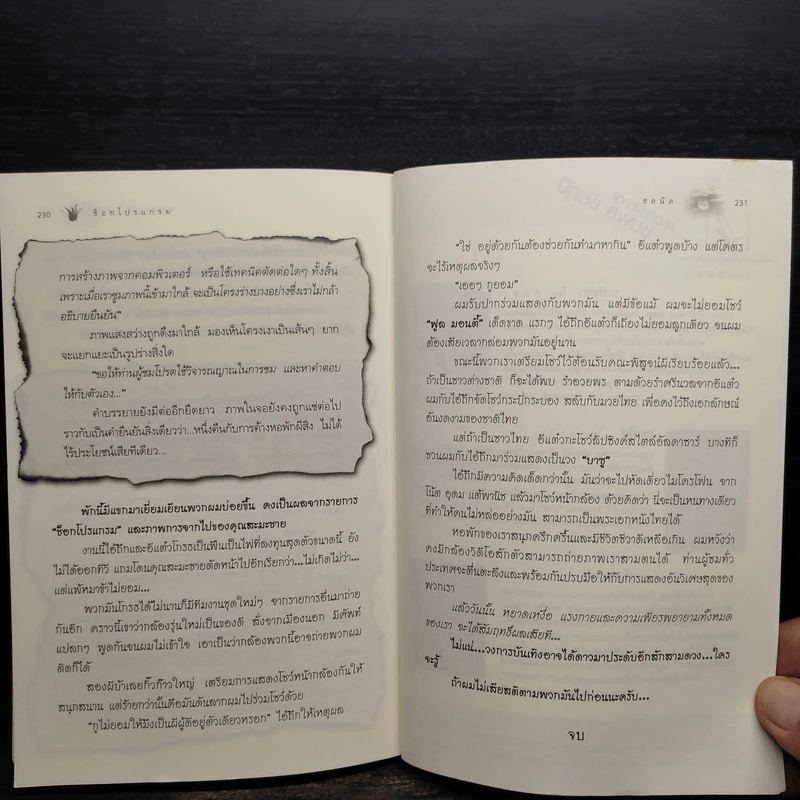 230 ช็อกโปรแกรม
การสร้างภาพจากคอมพิวเตอร์ หรือใช้เทคนิคตัดต่อใดๆ ทั้งสิ้น
เพราะเมื่อเราซูมภาพนี้เข้ามาใกล้ จะเป็นโครงร่างบางอย่างซึ่งเราไม่กล้า
อธิบายยืนยัน"
ภาพแสงสว่างถูกดึงมาใกล้ มองเห็นโครงเงาเป็นเส้นๆ ยาก
จะแยกแยะเป็นรูปร่างสิ่งใด
"ขอให้ท่านผู้ชมโปรดใช้วิจารณญาณในการชม และหาคำตอบ
ให้กับตัวเอง..."
คำบรรยายยังมีต่ออีกยืดยาว ภาพในจอยังคงถูกแช่ต่อไป
ราวกับเป็นคำยืนยันสิ่งเดียวว่า...หนึ่งคืนกับการค้างหอพักผีสิง ไม่ได้
ไร้ประโยชน์เสียทีเดียว...
พักนี้มีแขกมาเยี่ยมเยียนพวกผมบ่อยขึ้น คงเป็นผลจากรายการ
"ช็อกโปรแกรม" และภาพการจากไปของคุณสะมะชาย
งานนี้ไอ้ถึกและอีแต๋วโกรธเป็นฟืนเป็นไฟที่ลงทุนสุดตัวขนาดนี้ ยัง
ไม่ได้ออกทีวี แถมโดนคุณสะมะชายตัดหน้าไปอีกเรียกว่า...ไม่เกิดไม่ว่า...
แต่แพ้หมาข้าไม่ยอม...
พวกมันโกรธได้ไม่นานก็มีทีมงานชุดใหม่ๆ จากรายการอื่นมาถ่าย
กันอีก คราวนี้เขาว่ากล้องรุ่นใหม่เป็นของดี สั่งจากเมืองนอก มีศัพท์
แปลกๆ พูดกันจนผมไม่เข้าใจ เอาเป็นว่ากล้องพวกนี้อาจถ่ายพวกผม
ติดก็ได้
สองผีบ้าเลยกิ๊วก๊าวใหญ่ เตรียมการแสดงโชว์หน้ากล้องกันให้
สนุกสนาน แต่ร้ายกว่านั้นคือมันดันลากผมไปร่วมโชว์ด้วย
"กูไม่ยอมให้มึงเป็นผีผู้ดีอยู่ตัวเดียวหรอก" ไอ้ถึกให้เหตุผล
ชลนิล 231
"ใช่ อยู่ด้วยกันต้องช่วยกันทำมาหากิน" อีแต๋วพูดบ้าง แต่โคตร
จะไร้เหตุผลจริงๆ
"เออๆ กูยอม"
ผมรับปากร่วมแสดงกับพวกมัน แต่มีข้อแม้ ผมจะไม่ยอมโชว์
"ฟูล มอนตี้" เด็ดขาด แรกๆ ไอ้ถึกอีแต๋วก็เถียงไม่ยอมลูกเดียว จนผม
ต้องเสียเวลากล่อมพวกมันอยู่นาน
ขณะนี้พวกเราเตรียมโชว์ไว้ต้อนรับคณะพิสูจน์ผีเรียบร้อยแล้ว...
ถ้าเป็นชาวต่างชาติ ก็จะได้พบ รำอวยพร ตามด้วยรำศรีนวลจากอีแต๋ว
ผมกับไอ้ถึกจัดโชว์กระบี่กระบอง สลับกับมวยไทย เพื่อคงไว้ถึงเอกลักษณ์
อันงดงามของชาติไทย
แต่ถ้าเป็นชาวไทย อีแต๋วกะโชว์ลิปซิงค์สไตล์อัลคาซาร์ บางทีก็
ชวนผมกับไอ้ถึกมาร่วมแสดงเป็นวง "บาซู"
ไอ้ถึกมีความคิดเด็ดกว่านั้น มันว่าจะไปหัดเดี่ยวไมโครโฟน จาก
โน้ต อุดม แต้พานิช แล้วมาโชว์หน้ากล้อง ด้วยคิดว่า นี่จะเป็นหนทางเดียว
ที่ทำให้คนไม่หล่ออย่างมัน สามารถเป็นพระเอกหนังไทยได้
หอพักของเราสนุกครึกครื้นและมีชีวิตชีวาดีเหลือเกิน ผมหวังว่า
คงมีกล้องวิดีโอสักตัวสามารถถ่ายภาพเราสามตนได้ ท่านผู้ชมทั่ว
ประเทศจะตื่นตะลึงและพร้อมกันปรบมือให้กับการแสดงอันวิเศษสุดของ
พวกเรา
แล้ววันนั้น หยาดเหงื่อ แรงกายและความเพียรพยายามทั้งหมด
ของเรา จะได้สัมฤทธิ์ผลเสียที...
ไม่แน่...วงการบันเทิงอาจได้ดาวมาประดับอีกสักสามดวง...ใคร
จะรู้
ถ้าผมไม่เสียสติตามพวกมันไปก่อนนะครับ...
จบ